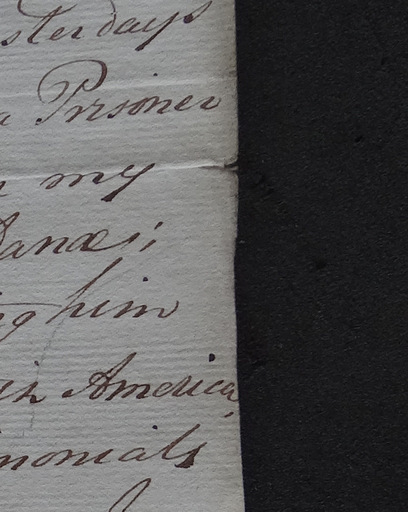 sterdays
a Prisoner
my
Danæs;
g him
th America,
monials